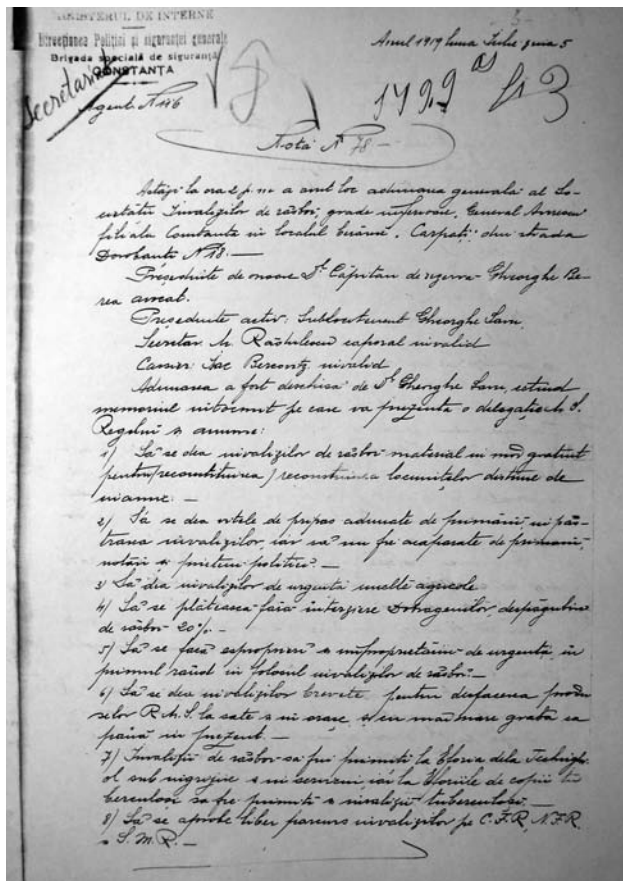 MINISTERUL DE INTERNE
Direcțiunea Poliției și siguranței generale
Brigada specială de siguranță
CONSTANȚA
Secretariat
Agent N 176
Anul 1919 luna Iulie ziua 5
Nota N 78 —
Astăzi la ora 2 p.m. a avut loc adunarea generală al So-
cietăței Invalizilor de răsboi, grade inferioare, General
filiala Constanța în localul „Carpați" din strada
Dorobanți N 18. —
Președinte de onoare Dl Căpitan de rezervă Gheorghe Be-
rea avocat.
Președinte activ: Sublocotenent Gheorghe Sava,
Secretar M. caporal invalid
Casier: Isac invalid
Adunarea a fost deschisă de Dl Gheorghe Sava, citind
memoriul întocmit pe care va prezenta o delegație M. S.
Regelui și anume:
1) Să se dea invalizilor de răsboi material în mod gratuit
pentru (reconstituirea) reconstruirea locuințelor distruse de
inamic. —
2) Să se dea vitele de pripas adunate de primării, în păs-
trarea invalizilor, iar să nu fie acaparate de primari,
notari și prieteni politici. —
3) Să dea invalizilor de urgență unelte agricole
4) Să se plătească fără întârziere Dobrogenilor despăgubiri
de răsboi 20%. —
5) Să se facă exproprieri și împroprietăriri de urgență, în
primul rând în folosul invalizilor de răsboi. —
6) Să se dea invalizilor brevete pentru desfacerea produ
selor R.M.S. la sate și în orașe, și cu mai mare grabă ca
până în prezent. —
7) Invalizii de răsboi să fie primiți la Eforia dela Techirghi-
ol sub îngrijire și în serviciu, iar la Eforiile de copii tu
berculoși să fie primiți și invalizii tuberculoși. —
8) Să se aprobe liber parcurs invalizilor pe C.F.R., N.F.R.
și S.M.R. —